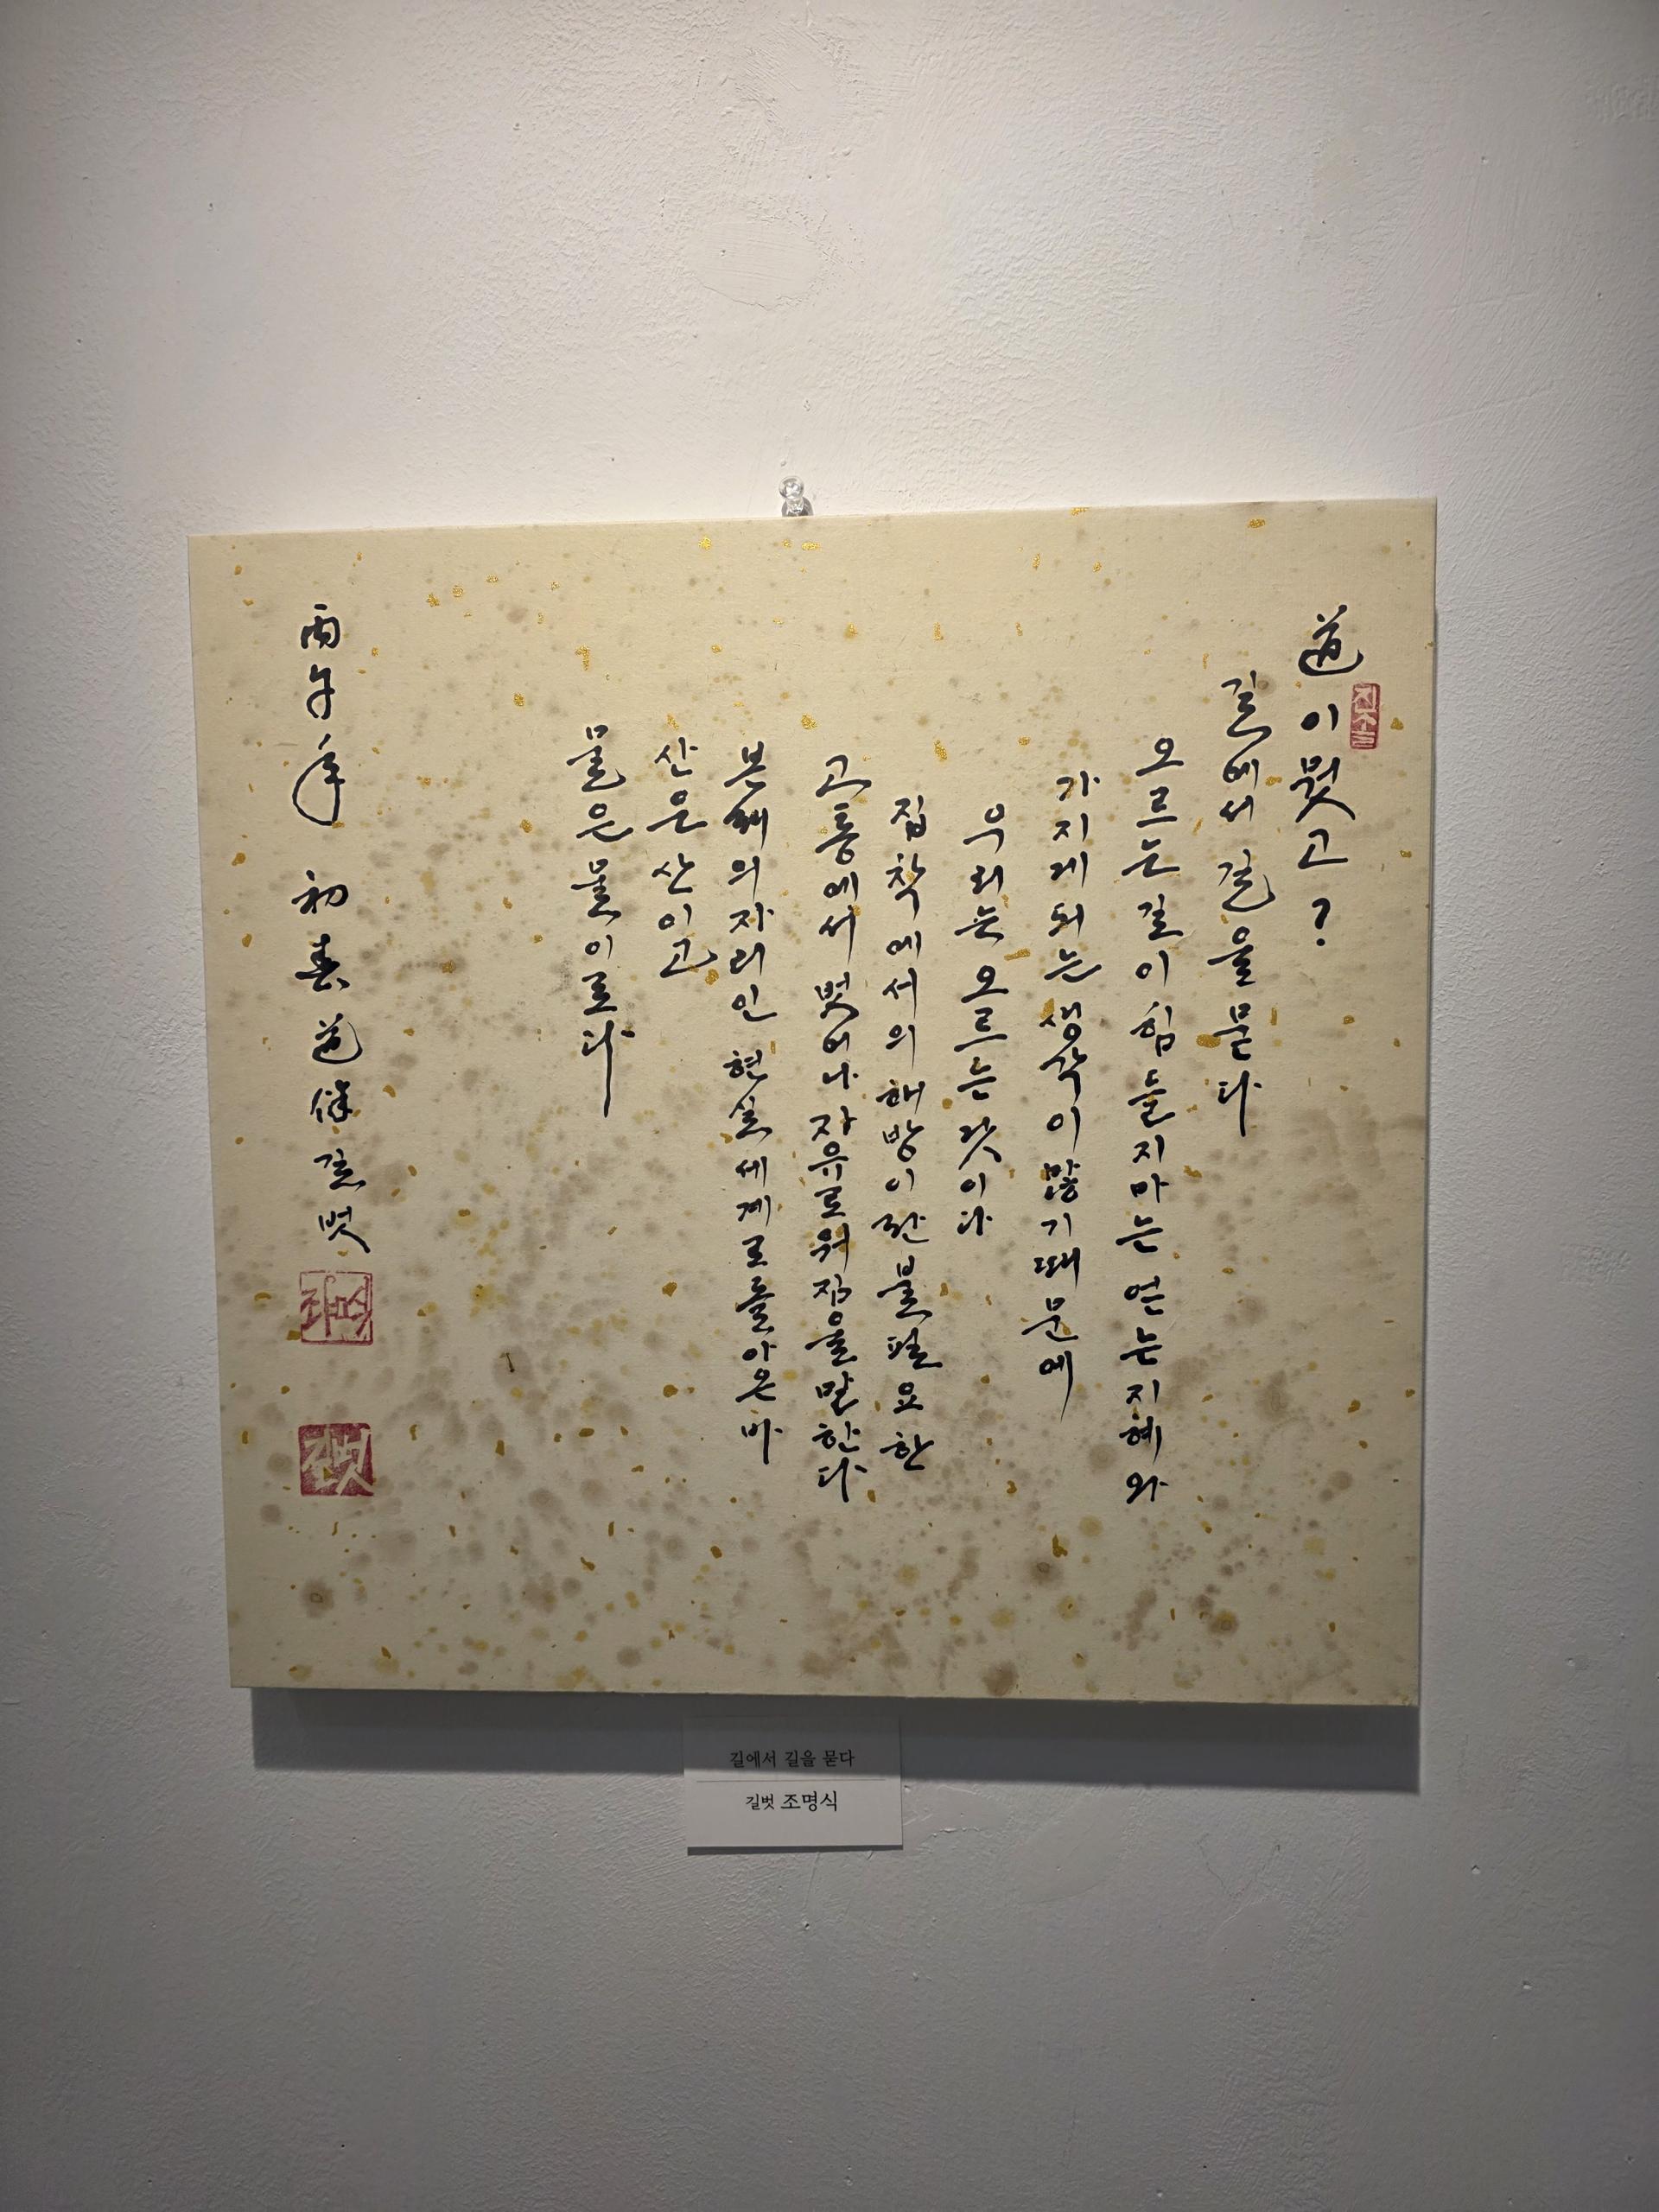 道이뭣고?
길에서 길을 묻다
오르는 길이 힘들지마는 얻는 지혜와
가지게 되는 생각이 많기 때문에
우리는 오르는 것이다
집착에서의 해방이란 불필요한
고통에서 벗어나 자유로워짐을 말한다
본래의 자리인 현실세계로 돌아온 바
산은 산이고
물은 물이로다
丙午年 初春 道伴 길벗
길벗
길에서 길을 묻다
길벗 조명식